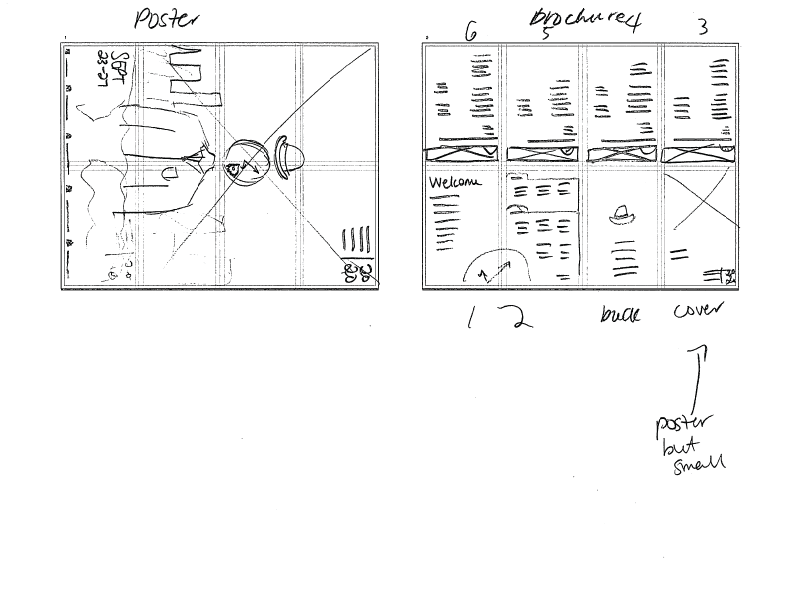 Poster
SEPT
23-27
Brochure
6
5
4
3
Welcome
1
2
back
cover
poster
but
small